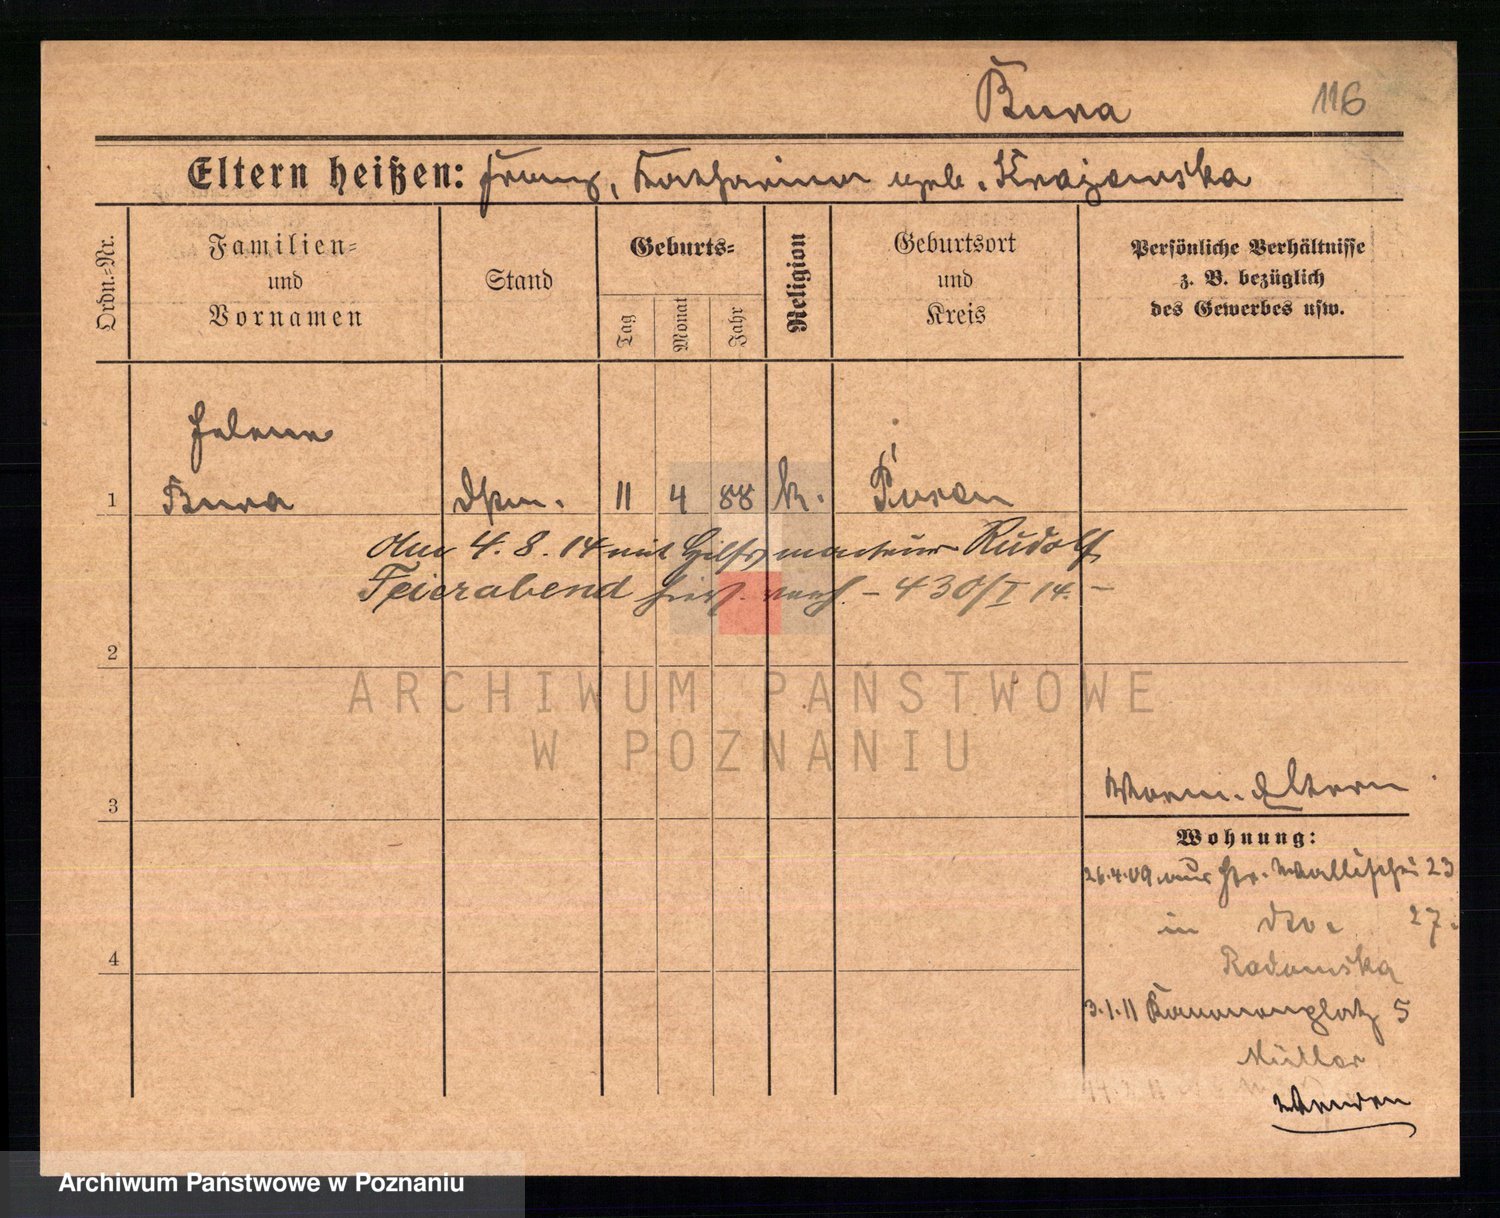 Bura 116
Eltern heißen: Franz, Katharina geb. Krajewska
Ordn.=Nr.
Familien=
und
Vornamen
Stand
Geburts=
Tag
Monat
Jahr
Religion
Geburtsort
und
Kreis
Persönliche Verhältnisse
z. B. bezüglich
des Gewerbes usw.
Helene
1 Bura 11 4 88 k. Posen
Am 4. 8. 14 mit Hilfsmonteur Rudolf
Feierabend hier verh. – 430/I 14. –
2
3
4
Eltern
Wohnung:
26.4.09 aus Gr. Wallischei 23
in 27.
Radomska
3.1.11 Kanonenplatz 5
Müller
wenden
ARCHIWUM PAŃSTWOWE
W POZNANIU
Archiwum Państwowe w Poznaniu